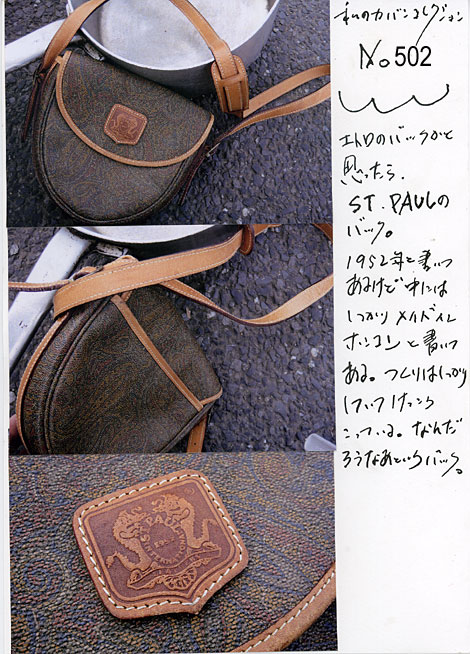 私のカバンコレクション
No 502
エトロのバックかと
思ったら、
ST. PAULの
バック。
1952年と書いて
あるけど中には
しっかりメイドイン
ホンコンと書いて
ある。つくりはしっかり
していてけっこう
こっている。なんだ
ろうなあというバック。
ST. PAUL